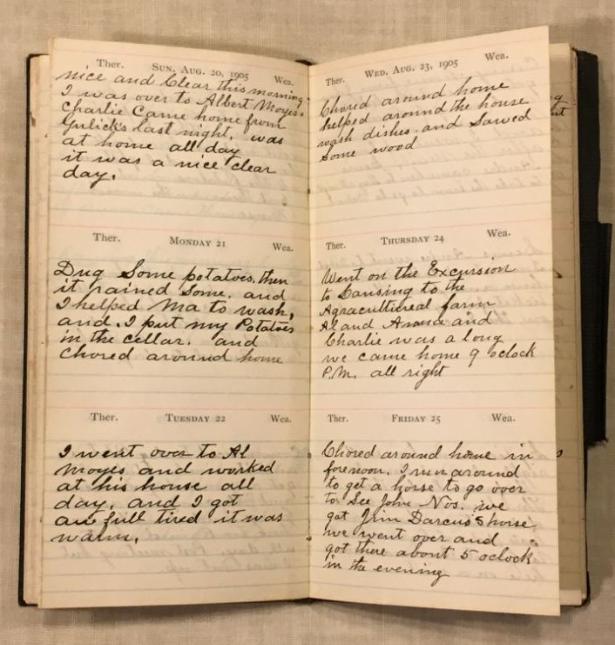 Ther. SUN. AUG. 20, 1905 Wea.
nice and Clear this morning
I was over to Albert Moyes.
Charlie Came home from
Gulick's last night. was
at home all day
it was a nice clear
day.
Ther. MONDAY 21 Wea.
Dug Some potatoes, then
it rained Some. and
I helped Ma to wash,
and. I put my Potatoes
in the cellar. and
Chored around home
Ther. TUESDAY 22 Wea.
I went over to Al
Moyes and worked
at his house all
day, and I got
awfull tired it was
warm.
Ther. WED. AUG. 23, 1905 Wea.
Chored around home
helped around the house
wash dishes. and Sawed
Some wood
Ther. THURSDAY 24 Wea.
Went on the Excursion
to Lansing to the
Agracultureal farm
Al and Anna and
Charlie was a long
we came home 9 oclock
P.M. all right
Ther. FRIDAY 25 Wea.
Chored around home in
forenoon. I run around
to get a horse to go over
to See John Nos. we
got Jim Darcus horse
we went over and
got there about 5 oclock
in the evening